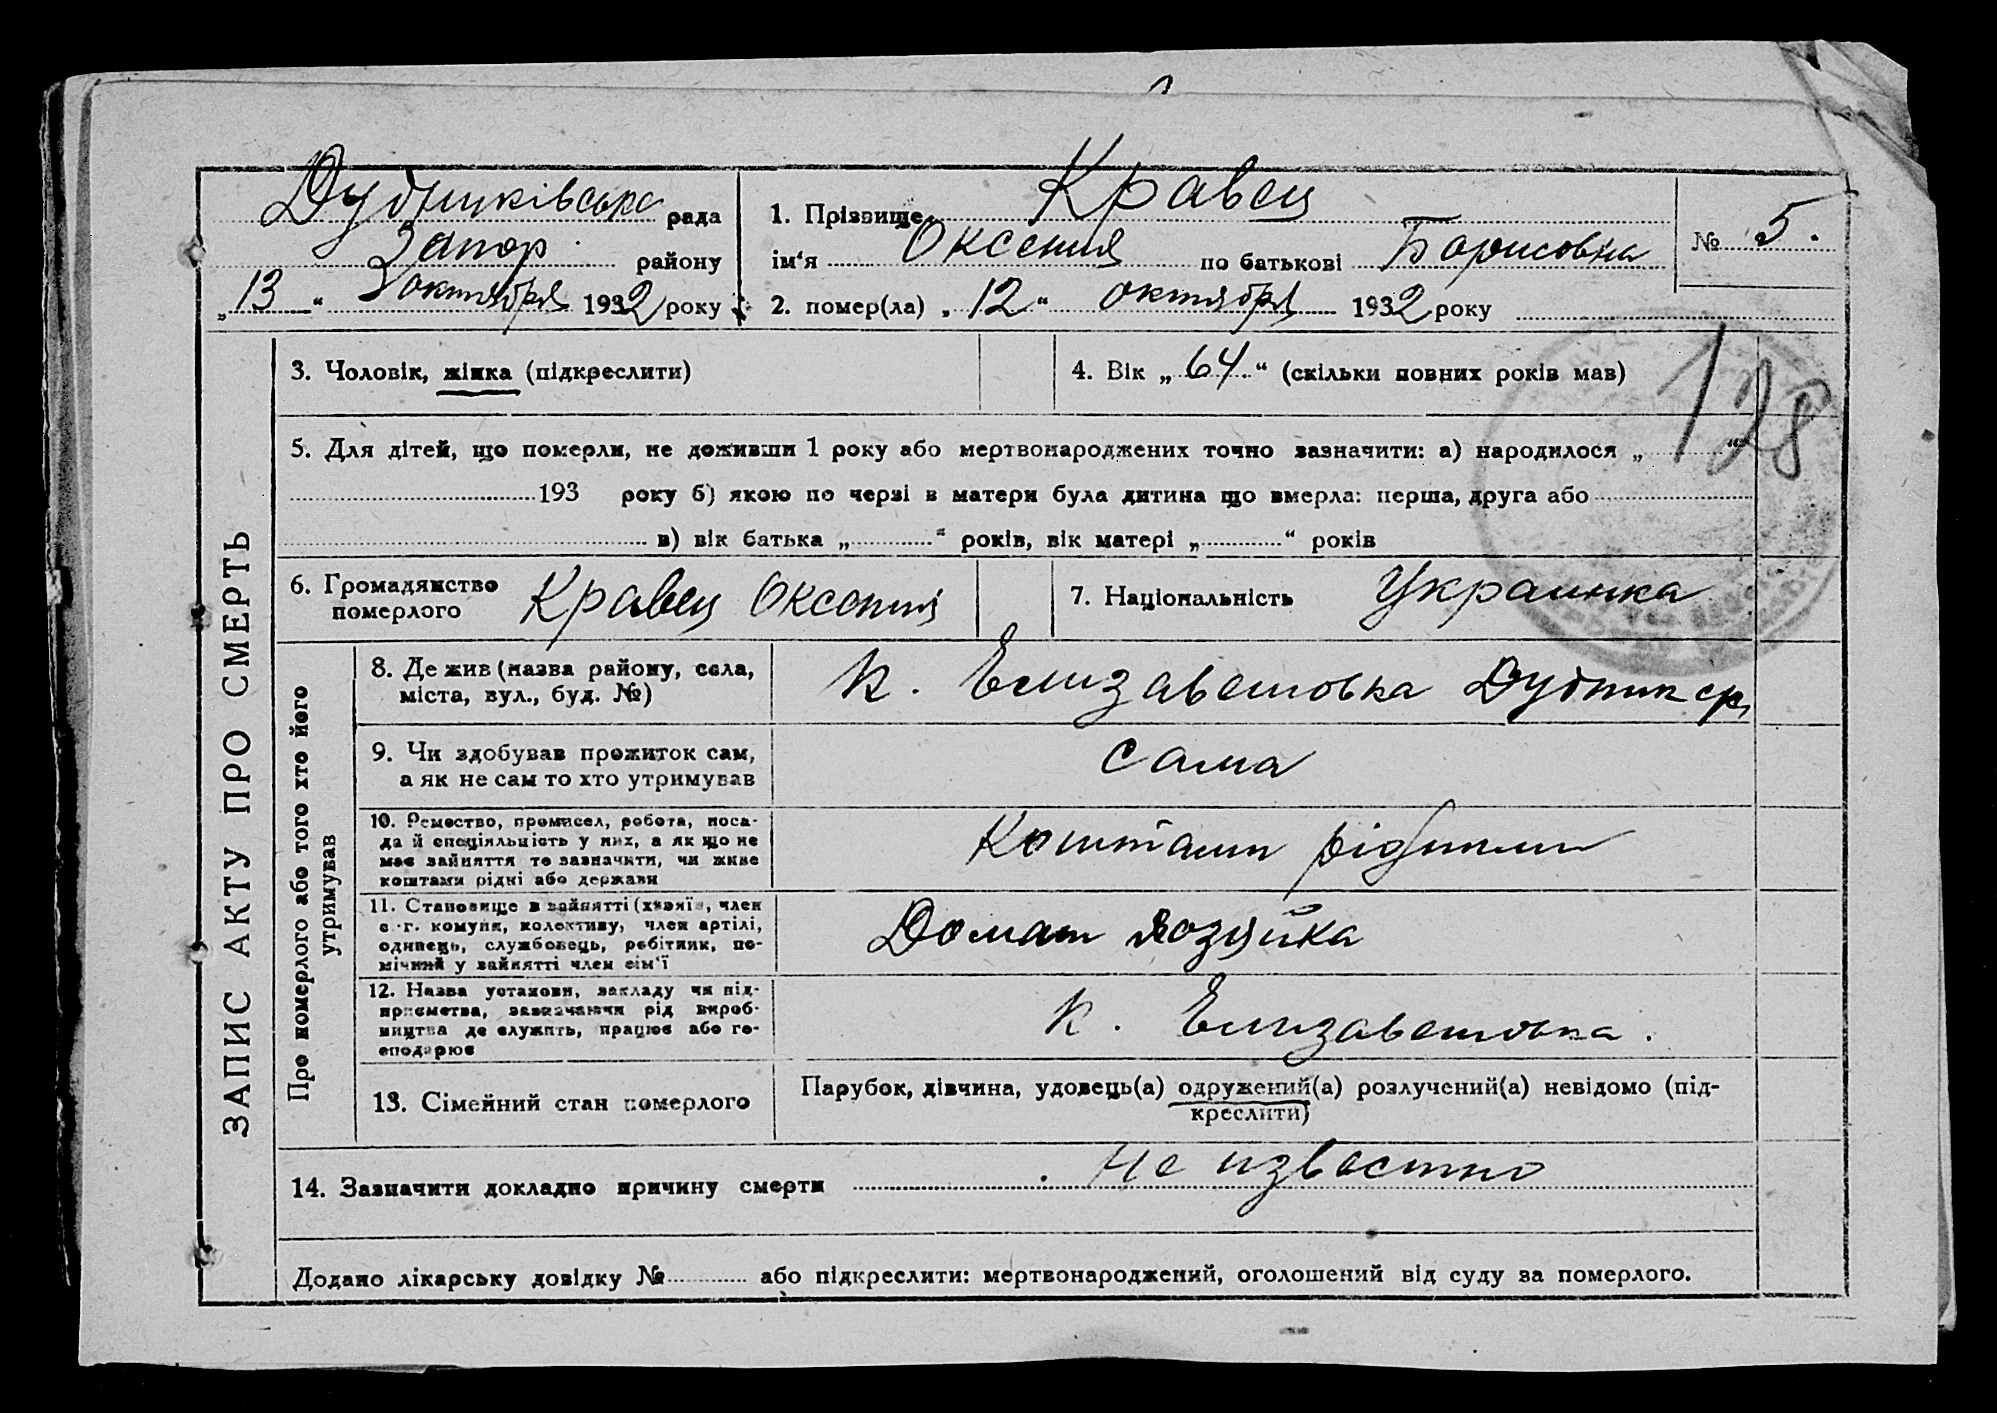 Дубниківська рада
Запор. району
„13“ октября 1932 року
1. Прізвище Кравец
ім‘я Оксения по батькові Борисовна
2. помер(ла) „12“ октября 1932 року
№ 5.
128
ЗАПИС АКТУ ПРО СМЕРТЬ
3. Чоловік, жінка (підкреслити)
4. Вік „64“ (скільки повних років мав)
5. Для дітей, що померли, не доживши 1 року або мертвонароджених точно зазначити: а) народилося „ “
193 року б) якою по черзі в матери була дитина що вмерла: перша, друга або
в) вік батька „ “ років, вік матері „ “ років
6. Громадянство
померлого
Кравец Оксения
7. Національність Украинка
Про померлого або того хто його
утримував
8. Де жив (назва району, села,
міста, вул., буд. №)
К. Елизаветовка Дубник ср,
9. Чи здобував прожиток сам,
а як не сам то хто утримував
сама
10. Ремество, промисел, робота, поса-
да й спеціяльність у них, а як що не
має зайняття то зазначити, чи живе
коштами рідні або держави
Коштами рідними
11. Становище в зайнятті (хазяїн, член
с.-г. комуни, колективу, член артілі,
одинець, службовець, робітник, по-
мічний у зайнятті член сім‘ї
Домаш хозяйка
12. Назва установи, закладу чи під-
приємства, зазначаючи рід вироб-
ництва де служить, працює або го-
сподарює
К. Елизаветовка.
13. Сімейний стан померлого
Парубок, дівчина, удовець(а) одружений(а) розлучений(а) невідомо (під-
креслити)
14. Зазначити докладно причину смерти не известно
Додано лікарську довідку № або підкреслити: мертвонароджений, оголошений від суду за померлого.